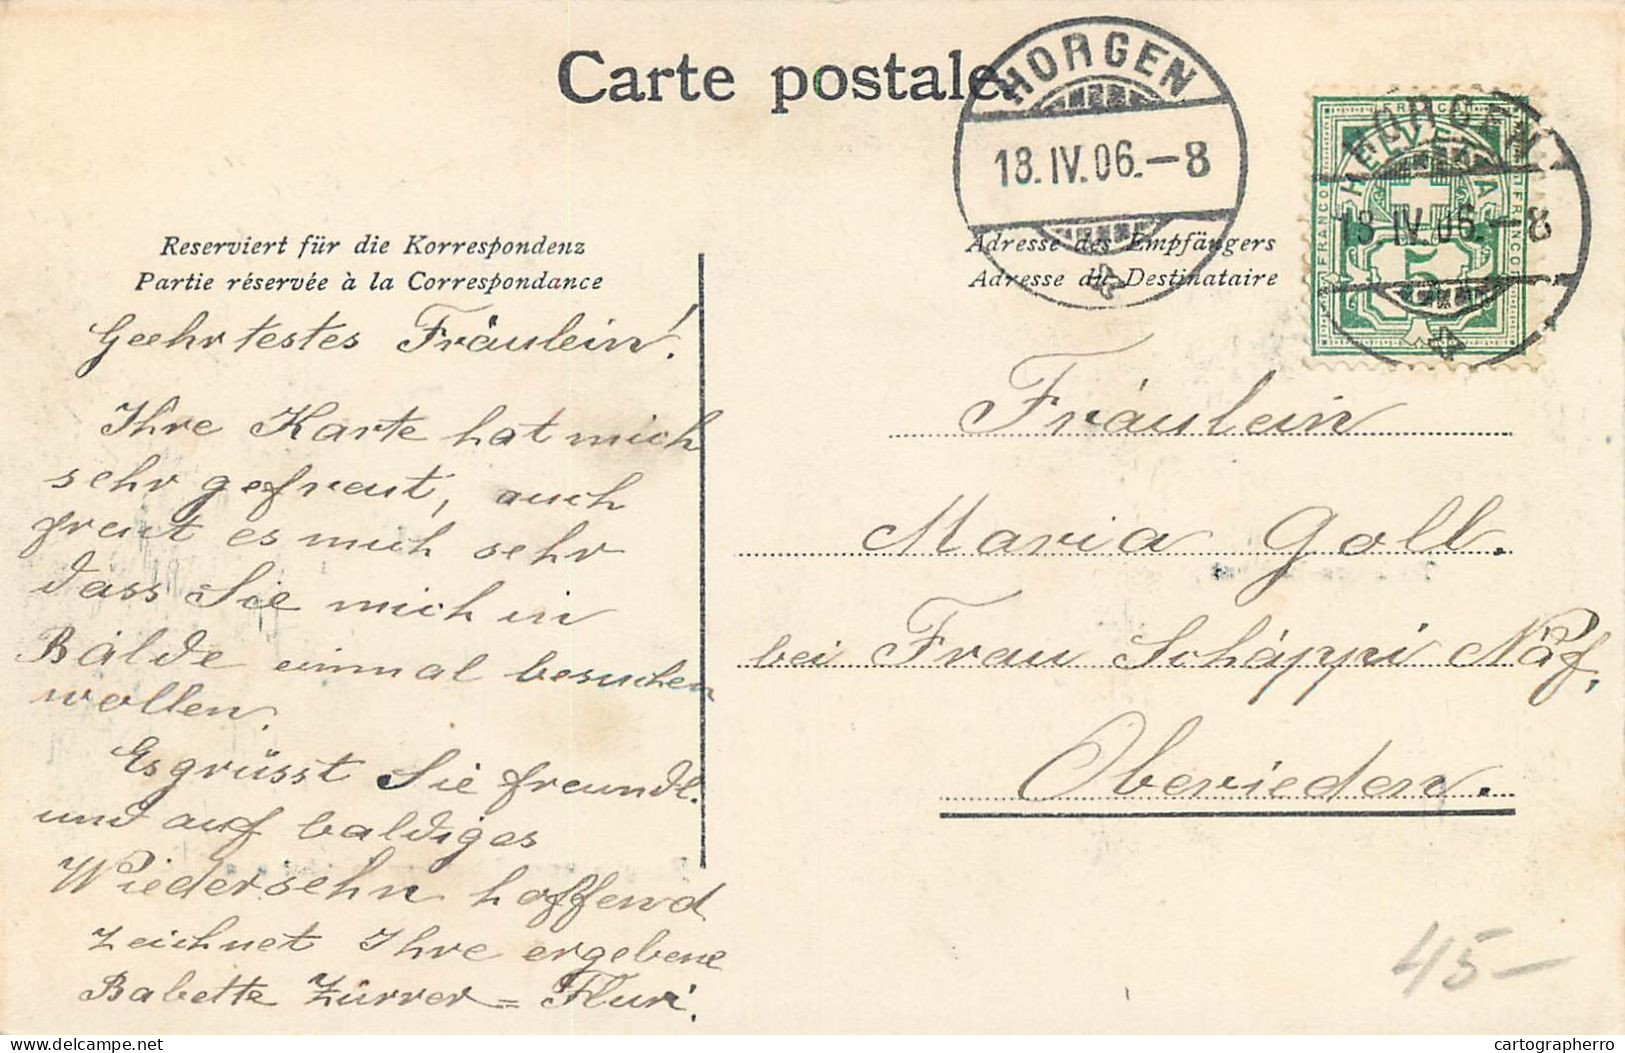 Carte postale.
HORGEN
18.IV.06.-8
HELVETIA
FRANCO
FRANCO
FRANCO
5
HORGEN
18.IV.06.-8
Reserviert für die Korrespondenz
Partie réservée à la Correspondance
Adresse des Empfängers
Adresse du Destinataire
Geehrtestes Fräulein!
Ihre Karte hat mich
sehr gefreut, auch
freut es mich sehr
dass Sie mich in
Bälde einmal besuchen
wollen.
Es grüsst Sie freundl.
und auf baldiges
Wiedersehn hoffend
zeichnet Ihre ergebene
Babette Zürrer=Fluri.
Fräulein
Maria Goll.
bei Frau Schäppi Näf,
Oberieden.
45-
delcampe.net
cartographerro